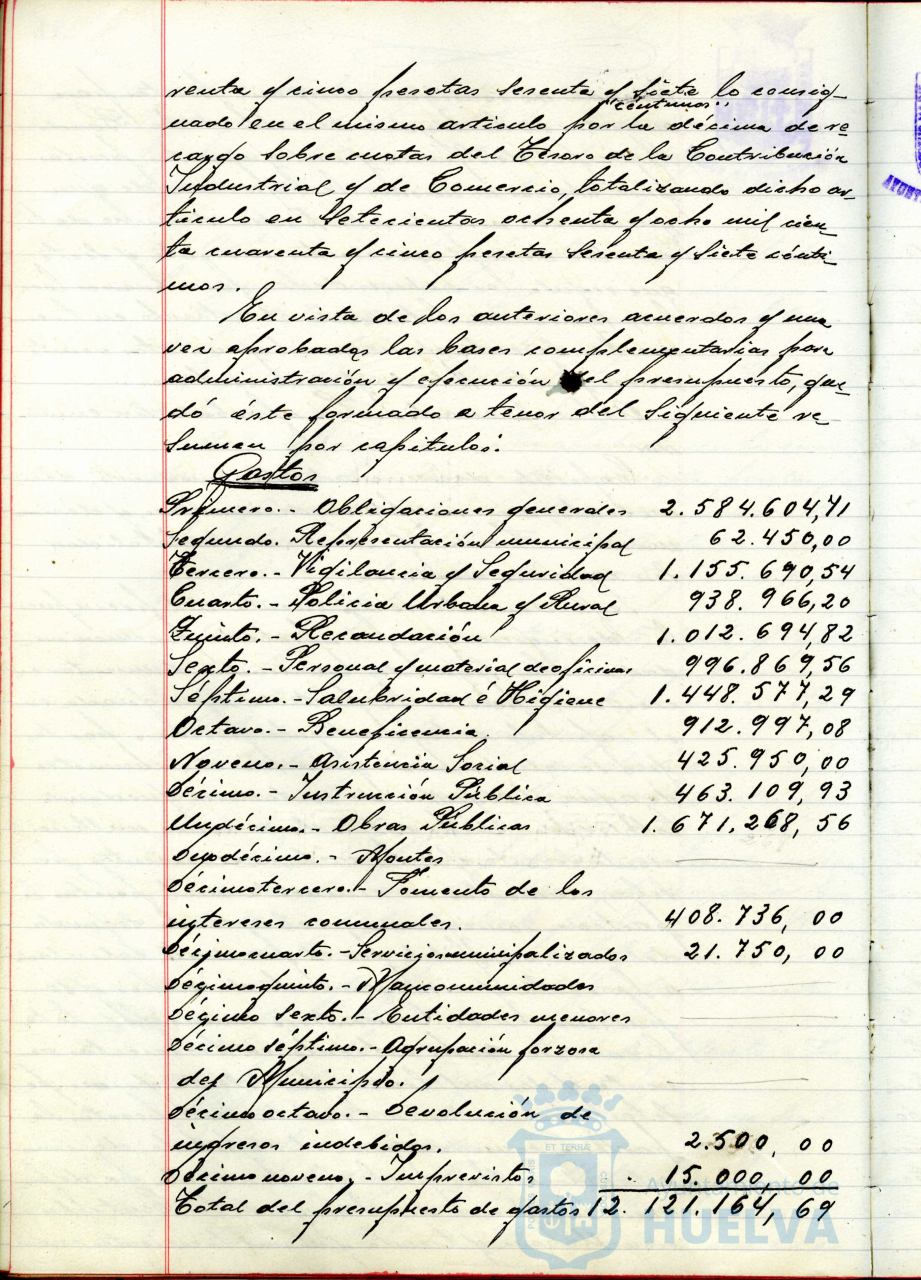 renta y cinco pesetas sesenta y siete lo consig-
céntimos
nado en el mismo articulo por la décima de re-
cargo sobre cuotas del Tesoro de la Contribución
Industrial y de Comercio, totalizando dicho ar-
ticulo en setecientas ochenta y ocho mil cien-
ta cuarenta y cinco pesetas sesenta y siete cénti-
mos.
En vista de los anteriores acuerdos y una
vez aprobadas las bases complementarias para
administración y ejecución del presupuesto, que-
dó éste formado a tenor del siguiente re-
sumen por capitulos:
Gastos
Primero.- Obligaciones generales 2.584.604,71
Segundo. Representación municipal 62.450,00
Tercero.- Vigilancia y Seguridad 1.155.690,54
Cuarto.- Policia Urbana y Rural 938.966,20
Quinto.- Recaudación 1.012.694,82
Sexto.- Personal y material de oficinas 996.869,56
Séptimo.- Salubridad é Higiene 1.448.577,29
Octavo.- Beneficencia. 912.997,08
Noveno.- Asistencia Social 425.950,00
Décimo.- Instrucción Pública 463.109,93
Undécimo.- Obras Públicas 1.671.268,56
Duodécimo.- Montes
Décimotercero.- Fomento de los
intereses comunales. 408.736,00
Décimocuarto.- Servicios municipalizados 21.750,00
Décimoquinto.- Mancomunidades
Décimo Sexto.- Entidades menores
Décimo séptimo.- Agrupación forzosa
del Municipio.
Décimo octavo.- Devolución de
ingresos indebidos. 2.500,00
Décimo noveno.- Imprevistos 15.000,00
Total del presupuesto de gastos 12.121.164,69
Ayuntamiento de
HUELVA